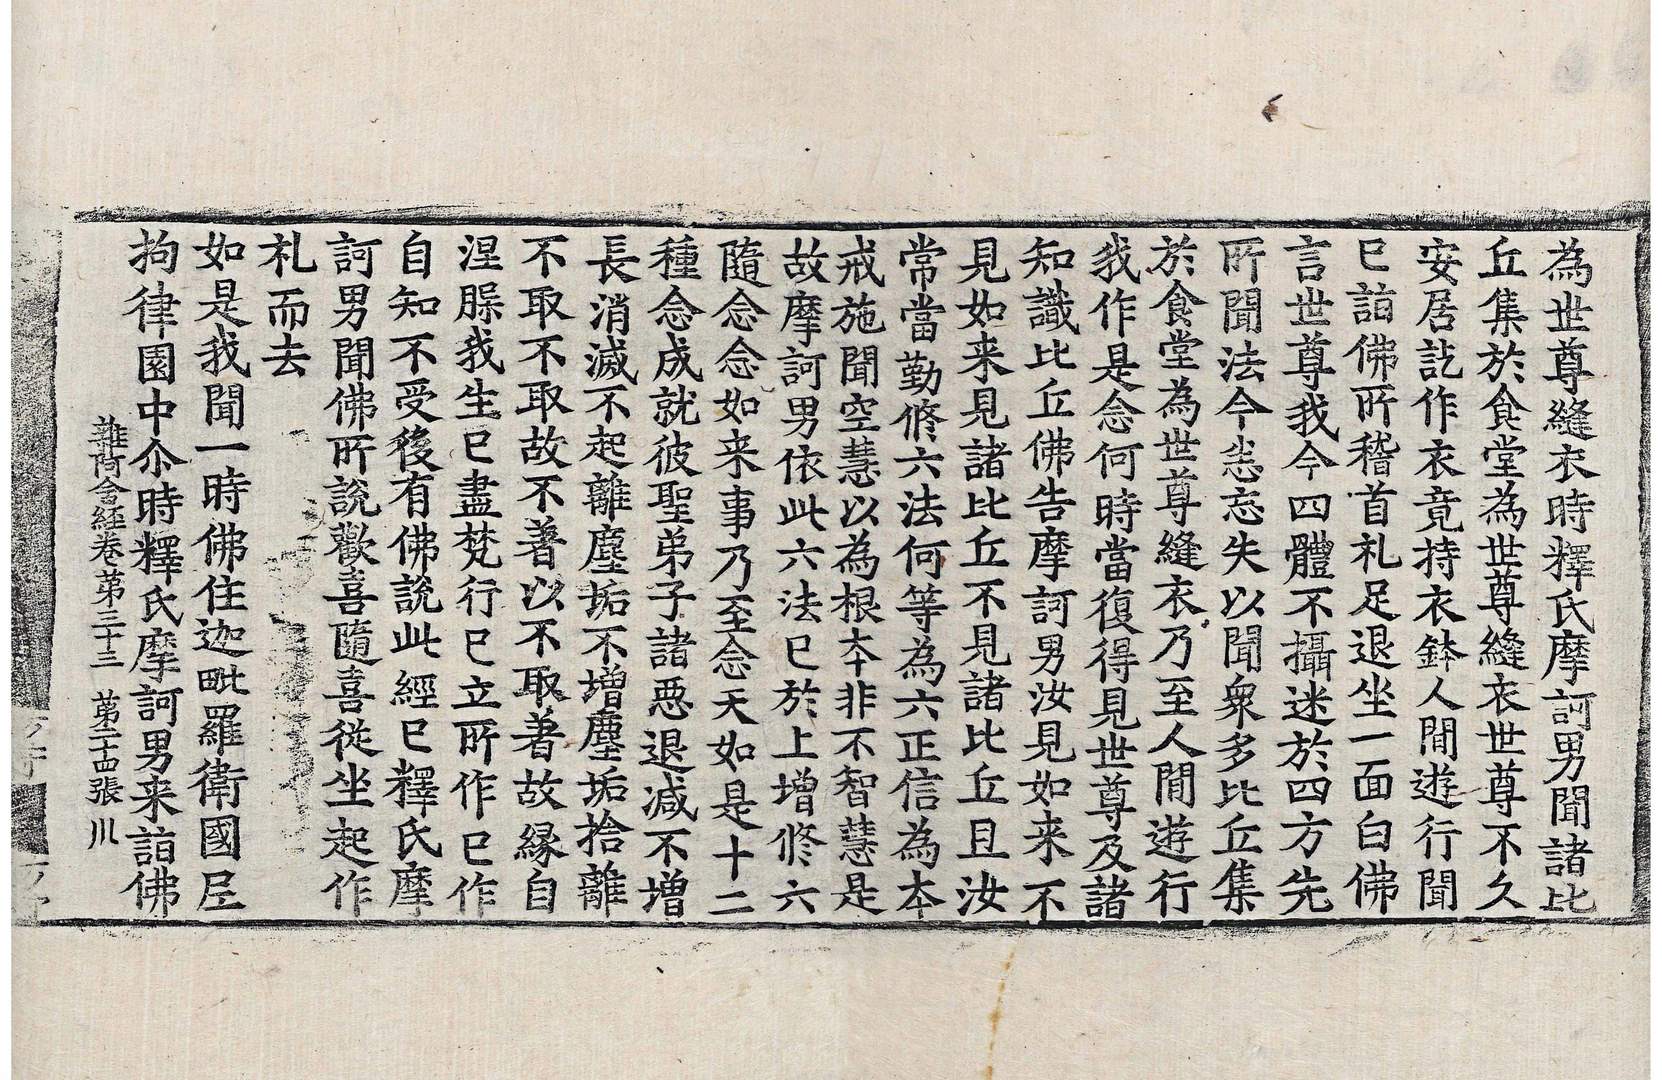 為世尊縫衣時釋氏摩訶男聞諸比
丘集於食堂為世尊縫衣世尊不久
安居訖作衣竟持衣鉢人間遊行聞
已詣佛所稽首礼足退坐一面白佛
言世尊我今四體不攝迷於四方先
所聞法今悉忘失以聞衆多比丘集
於食堂為世尊縫衣乃至人間遊行
我作是念何時當復得見世尊及諸
知識比丘佛告摩訶男汝見如来不
見如来見諸比丘不見諸比丘且汝
常當勤修六法何等為六正信為本
戒施聞空慧以為根本非不智慧是
故摩訶男依此六法已於上增修六
隨念念如来事乃至念天如是十二
種念成就彼聖弟子諸惡退減不增
長消滅不起離塵垢不增塵垢捨離
不取不取故不著以不取著故縁自
涅槃我生已盡梵行已立所作已作
自知不受後有佛說此經已釋氏摩
訶男聞佛所說歡喜隨喜從坐起作
礼而去
如是我聞一時佛住迦毗羅衛國尼
拘律園中尒時釋氏摩訶男来詣佛
雜阿含経卷苐三十三 苐二十四張 川